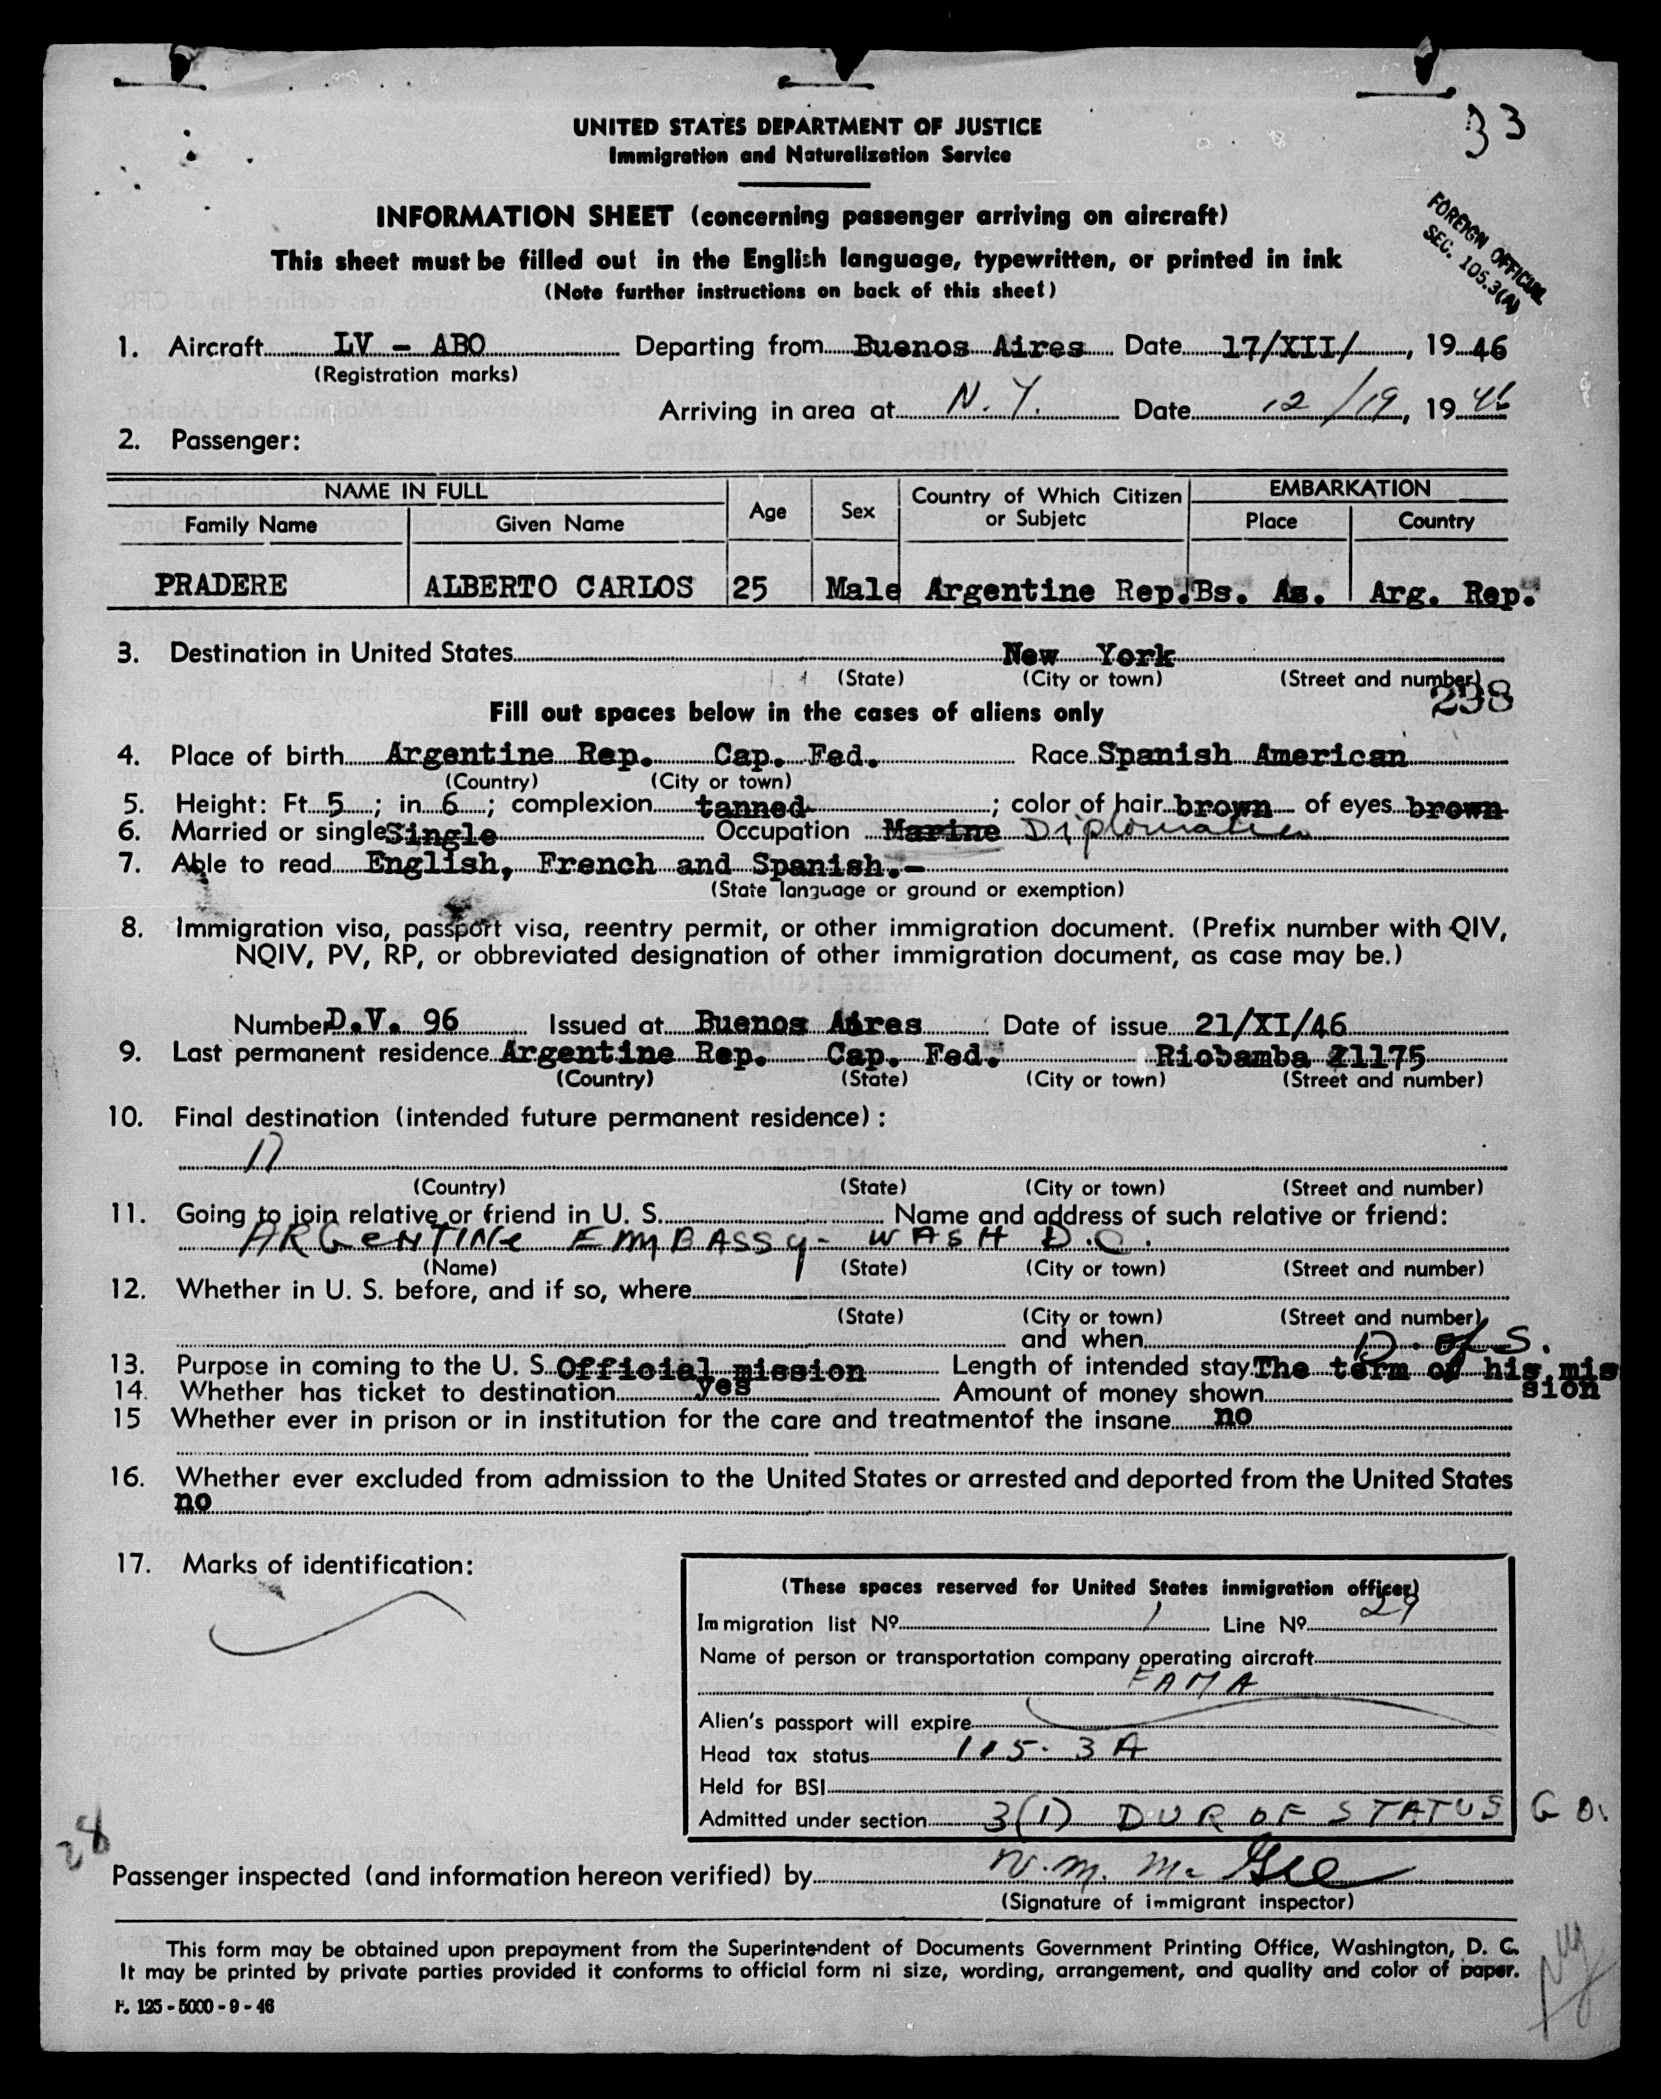 33
UNITED STATES DEPARTMENT OF JUSTICE
Immigration and Naturalization Service
INFORMATION SHEET (concerning passenger arriving on aircraft)
This sheet must be filled out in the English language, typewritten, or printed in ink
(Note further instructions on back of this sheet)
FOREIGN OFFICIAL
SEC. 105.3(A)
1. Aircraft LV - ABO Departing from Buenos Aires Date 17/XII/, 19 46
(Registration marks)
Arriving in area at N.Y. Date 12/19, 19 46
2. Passenger:
NAME IN FULL Age Sex Country of Which Citizen or Subjetc EMBARKATION
Family Name Given Name Place Country
PRADERE ALBERTO CARLOS 25 Male Argentine Rep. Bs. As. Arg. Rep.
3. Destination in United States New York
(State) (City or town) (Street and number)
238
Fill out spaces below in the cases of aliens only
4. Place of birth Argentine Rep. Cap. Fed. Race Spanish American
(Country) (City or town)
5. Height: Ft. 5; in. 6; complexion tanned; color of hair brown of eyes brown
6. Married or single Single Occupation Marine Diplomatic
7. Able to read English, French and Spanish.-
(State language or ground or exemption)
8. Immigration visa, passport visa, reentry permit, or other immigration document. (Prefix number with QIV,
NQIV, PV, RP, or obbreviated designation of other immigration document, as case may be.)
Number D.V. 96 Issued at Buenos Aires Date of issue 21/XI/46
9. Last permanent residence Argentine Rep. Cap. Fed. Riobamba 1175
(Country) (State) (City or town) (Street and number)
10. Final destination (intended future permanent residence):
(Country) (State) (City or town) (Street and number)
11. Going to join relative or friend in U. S. Name and address of such relative or friend:
ARGENTINE EMBASSY - WASH D.C.
(Name) (State) (City or town) (Street and number)
12. Whether in U. S. before, and if so, where
(State) (City or town) (Street and number)
and when D. of S.
13. Purpose in coming to the U. S. Official mission Length of intended stay The term of his mis
sion
14. Whether has ticket to destination yes Amount of money shown
15 Whether ever in prison or in institution for the care and treatmentof the insane no
16. Whether ever excluded from admission to the United States or arrested and deported from the United States
no
17. Marks of identification:
(These spaces reserved for United States inmigration officer)
Immigration list Nº 1 Line Nº 29
Name of person or transportation company operating aircraft
FAMA
Alien's passport will expire
Head tax status 105.3A
Held for BSI
Admitted under section 3(1) DUR OF STATUS
28
Passenger inspected (and information hereon verified) by N. M. McGee
(Signature of immigrant inspector)
This form may be obtained upon prepayment from the Superintendent of Documents Government Printing Office, Washington, D. C.
It may be printed by private parties provided it conforms to official form ni size, wording, arrangement, and quality and color of paper.
F. 125 - 5000 - 9 - 46
NY